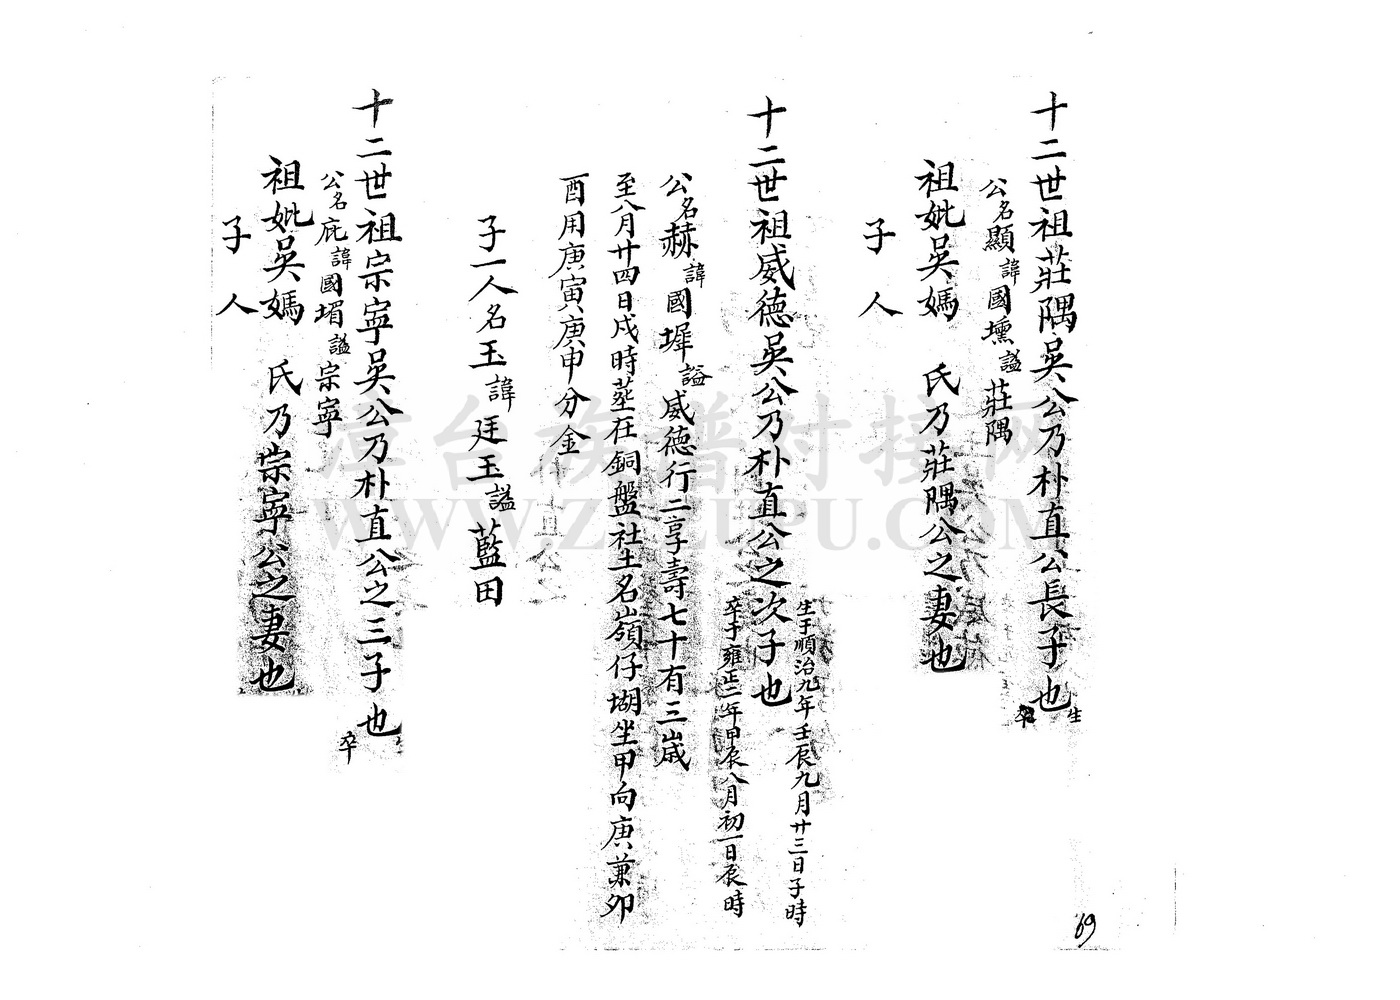 十二世祖莊隅吳公乃朴直公長子也 生 卒
公名顯諱國壎謚莊隅
祖妣吳媽 氏乃莊隅公之妻也
子 人
十二世祖威德吳公乃朴直公之次子也
生于順治九年壬辰九月廿三日子時
卒于雍正二年甲辰八月初一日辰時
公名赫諱國墀謚威德行二享壽七十有三歲
至八月廿四日戌時葬在銅盤社土名嶺仔坳坐甲向庚兼卯
酉用庚寅庚申分金
子一人名玉諱廷玉謚藍田
十二世祖宗寧吳公乃朴直公之三子也 生 卒
公名庇諱國堳謚宗寧
祖妣吳媽 氏乃宗寧公之妻也
子 人
69
漳台族譜对接网
WWW.ZTZUPU.COM